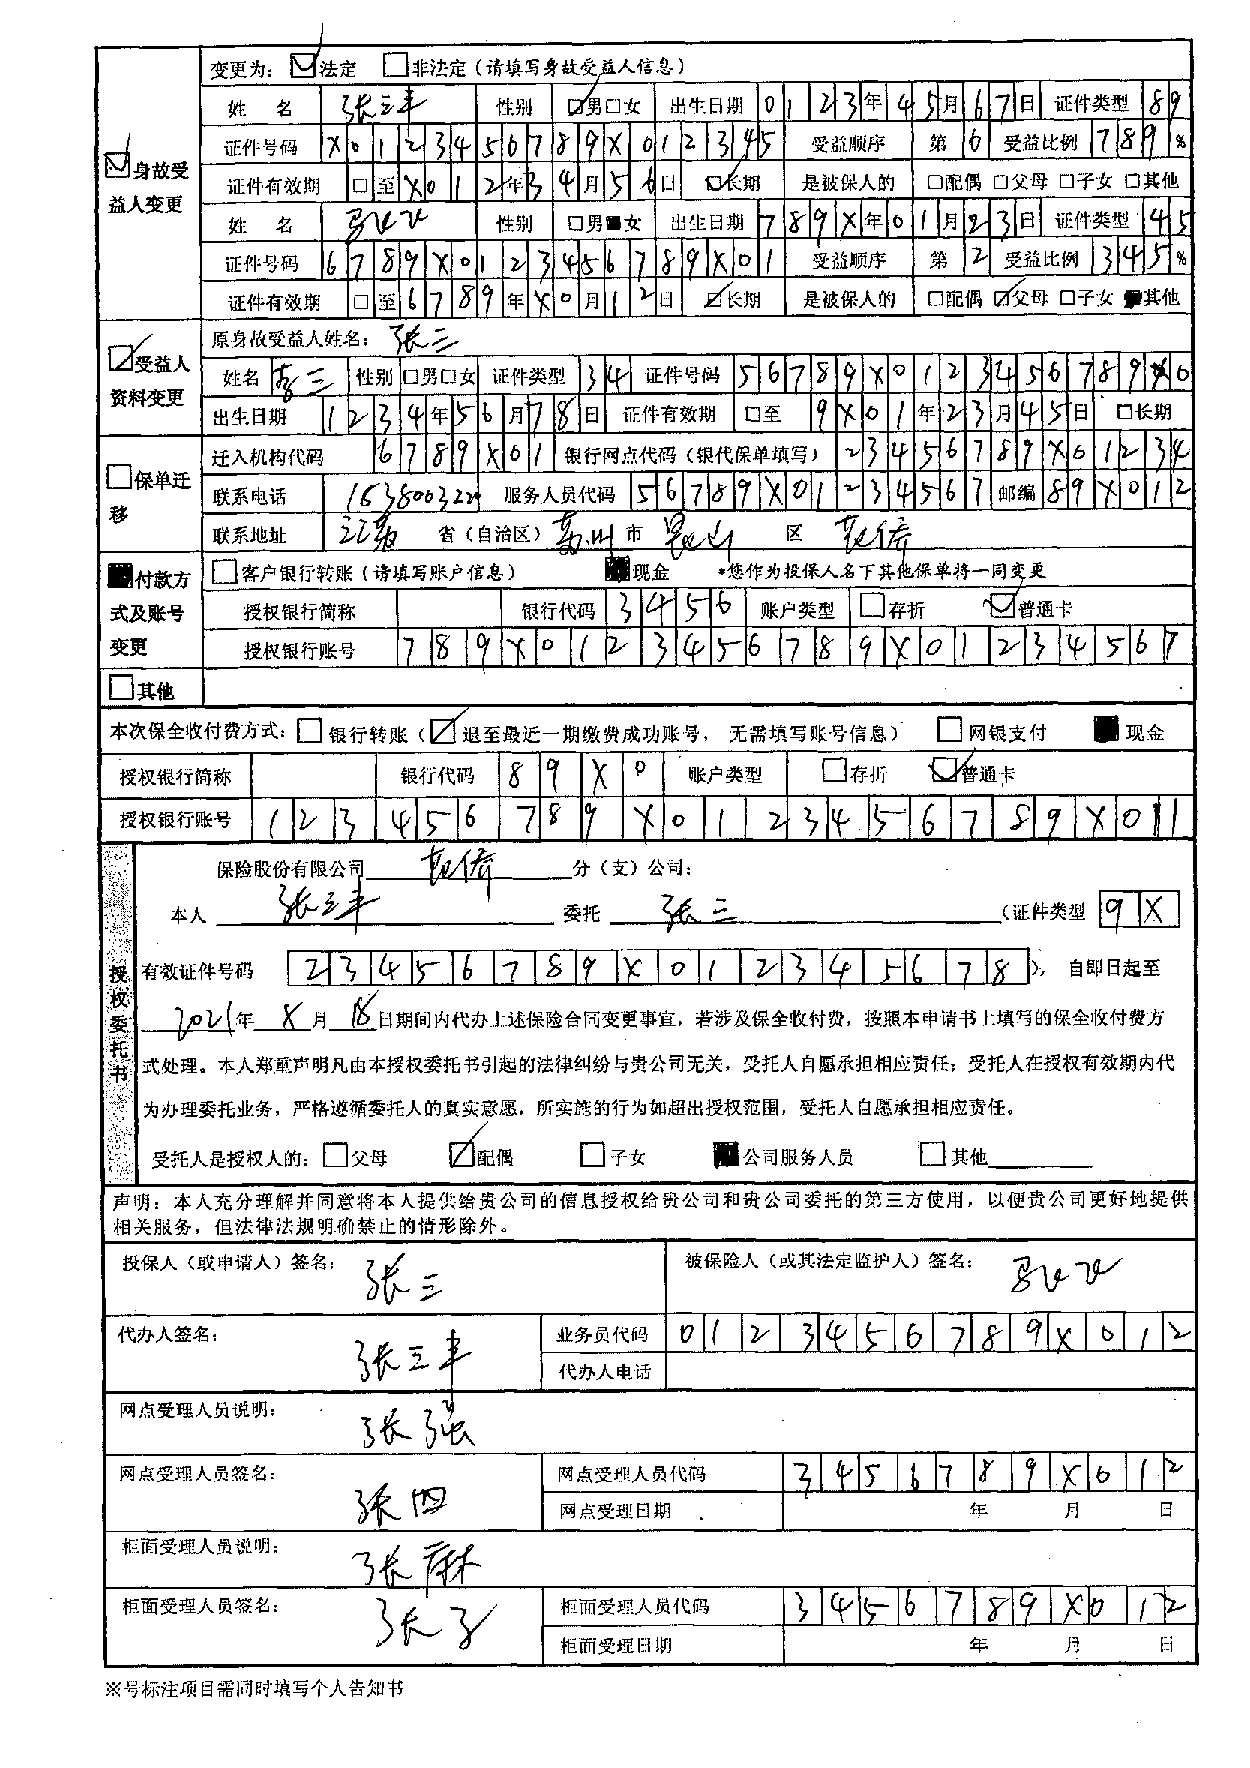 变更为：☑法定 □非法定（请填写身故受益人信息）
☑身故受益人变更
姓 名 张三丰 性别 ☑男□女 出生日期 0123年45月67日 证件类型 89
证件号码 X0123456789X012345 受益顺序 第6 受益比例 789%
证件有效期 □至X012年34月56日 ☑长期 是被保人的 □配偶□父母□子女□其他
姓 名 性别 □男■女 出生日期 789X年01月23日 证件类型 45
证件号码 6789X0123456789X01 受益顺序 第2 受益比例 345%
证件有效期 □至6789年X0月12日 ☑长期 是被保人的 □配偶☑父母□子女■其他
☑受益人资料变更
原身故受益人姓名：张三
姓名 李三 性别□男□女 证件类型 34 证件号码 56789X0123456789X0
出生日期 1234年56月78日 证件有效期 □至 9X01年23月45日 □长期
□保单迁移
迁入机构代码 6789X01 银行网点代码（银代保单填写）23456789X01234
联系电话 服务人员代码 56789X01234567 邮编 89X012
联系地址 江苏 省（自治区）苏州 市 昆山 区 花侨
■付款方式及账号变更
□客户银行转账（请填写账户信息） ■现金 *您作为投保人名下其他保单将一同变更
授权银行简称 银行代码 3456 账户类型 □存折 ☑普通卡
授权银行账号 789X0123456789X01234567
□其他
本次保全收付费方式：□银行转账（☑退至最近一期缴费成功账号，无需填写账号信息） □网银支付 ■现金
授权银行简称 银行代码 89X0 账户类型 □存折 ☑普通卡
授权银行账号 123456789X0123456789X01
授权委托书
保险股份有限公司 花侨 分（支）公司：
本人 张三丰 委托 张三 （证件类型 9X
有效证件号码 23456789X012345678），自即日起至
2021年 X月 18日期间内代办上述保险合同变更事宜，若涉及保全收付费，按照本申请书上填写的保全收付费方
式处理。本人郑重声明凡由本授权委托书引起的法律纠纷与贵公司无关，受托人自愿承担相应责任；受托人在授权有效期内代
为办理委托业务，严格遵循委托人的真实意愿，所实施的行为如超出授权范围，受托人自愿承担相应责任。
受托人是授权人的：□父母 ☑配偶 □子女 ■公司服务人员 □其他
声明：本人充分理解并同意将本人提供给贵公司的信息授权给贵公司和贵公司委托的第三方使用，以便贵公司更好地提供
相关服务，但法律法规明确禁止的情形除外。
投保人（或申请人）签名：张三 被保险人（或其法定监护人）签名：
代办人签名：张三丰 业务员代码 0123456789X012
代办人电话
网点受理人员说明：张强
网点受理人员签名：张四 网点受理人员代码 3456789X012
网点受理日期 年 月 日
柜面受理人员说明：张麻
柜面受理人员签名：张子 柜面受理人员代码 3456789X012
柜面受理日期 年 月 日
※号标注项目需同时填写个人告知书